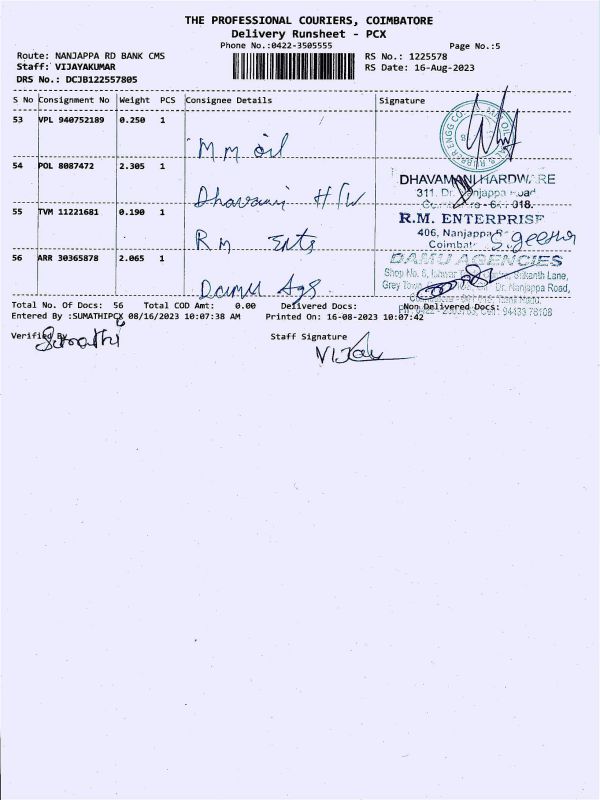 THE PROFESSIONAL COURIERS, COIMBATORE
Delivery Runsheet - PCX
Phone No.:0422-3505555
Page No.:5
Route: NANJAPPA RD BANK CMS
RS No.: 1225578
Staff: VIJAYAKUMAR
RS Date: 16-Aug-2023
DRS No.: DCJB122557805
S No Consignment No Weight PCS Consignee Details Signature
53 VPL 940752189 0.250 1
M M oil
54 POL 8087472 2.305 1
DHAVAMANI HARDWARE
311, Dr. Nanjappa Road
018.
Dhavamni H/W
55 TVM 11221681 0.190 1
R.M. ENTERPRISE
406, Nanjappa
Coimbat
S.geetha
R M Ents
56 ARR 30365878 2.065 1
DAMU AGENCIES
Shop No. 6, Srikanth Lane,
Grey Town Dr. Nanjappa Road,
Damu Ags.
94433 78108
Total No. Of Docs: 56 Total COD Amt: 0.00 Delivered Docs: Non Delivered Docs:
Entered By :SUMATHIPCX 08/16/2023 10:07:38 AM Printed On: 16-08-2023 10:07:42
Verified By
Sumathi
Staff Signature
Vijay